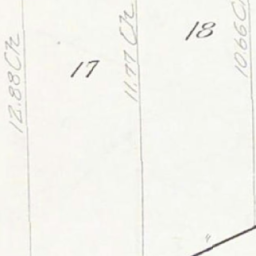 12.88 Ch
17
11.77 Ch
18
10.66 C